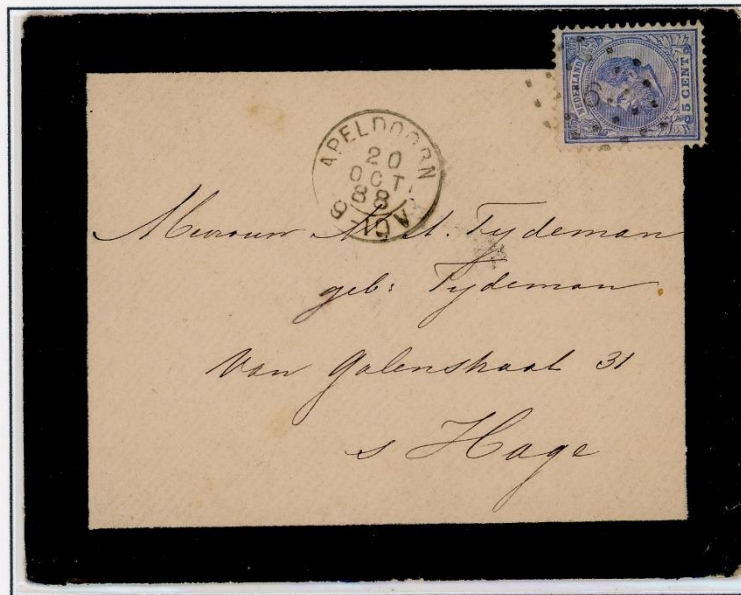 NEDERLAND
5 CENT
APELDOORN
20
OCT
88
Mevrouw Tydeman
geb: Tydeman
Van Galenstraat 31
s Hage